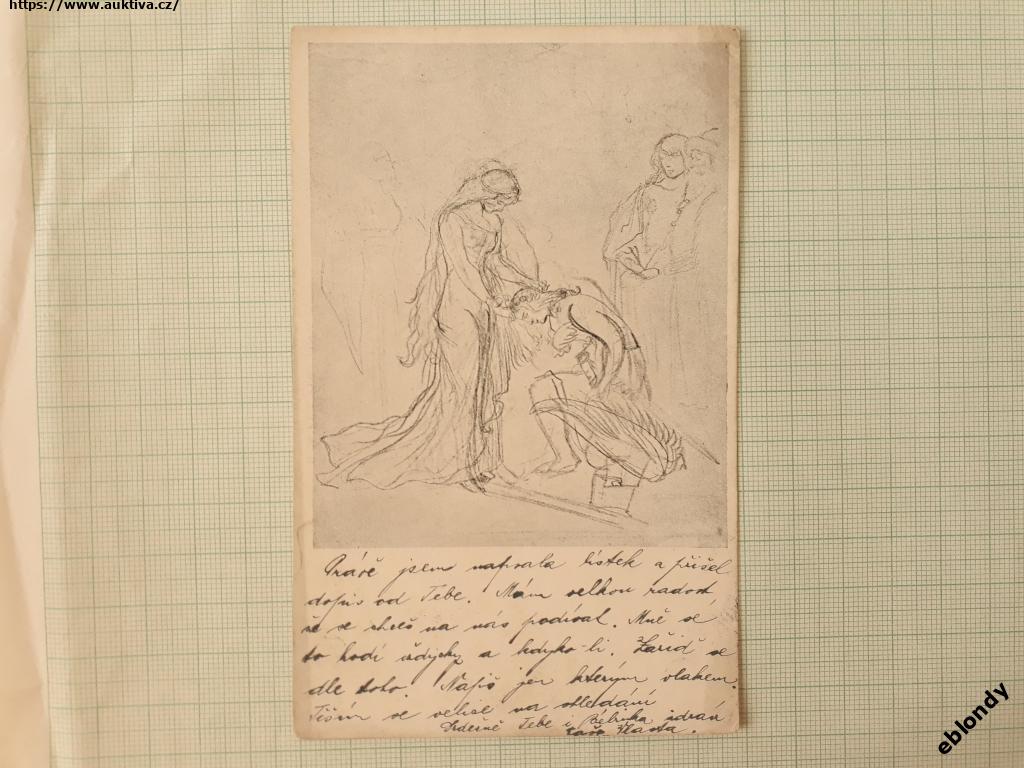 https://www.auktiva.cz/
Právě jsem napsala lístek a přišel
dopis od Tebe. Mám velkou radost,
že se chceš na nás podívat. Mně se
to hodí vždycky a kdyko-li. Zařiď se
dle toho. Napiš jen kterým vlakem.
Těším se velice na shledání
Srdečně Tebe i zdraví
Vlasta.
eblondy